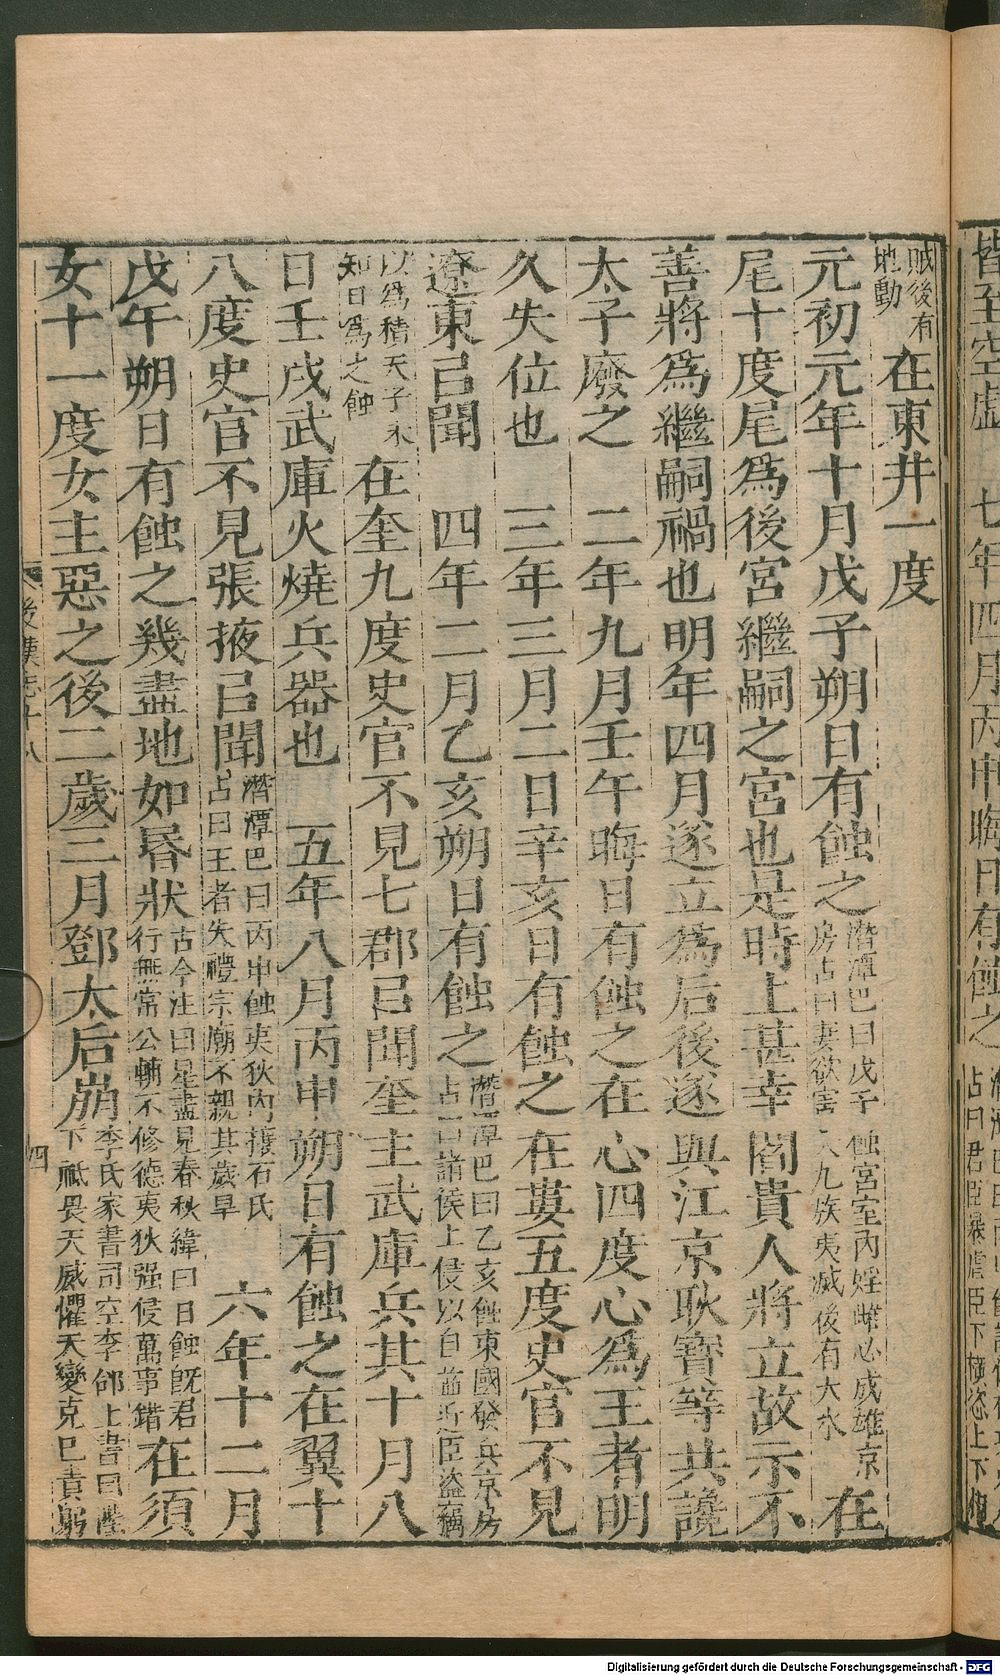 皆至空虛　七年四月丙申晦日有蝕之
賊後有
地動
在東井一度
元初元年十月戊子朔日有蝕之
潛潭巴曰戊子蝕宮室內婬雌必成雄京
房占曰妻欲害夫九族夷滅後有大水
在
尾十度尾爲後宮繼嗣之宮也是時上甚幸閻貴人將立故示不
善將爲繼嗣禍也明年四月遂立爲后後遂與江京耿寶等共讒
太子廢之　二年九月壬午晦日有蝕之在心四度心爲王者明
久失位也　三年三月二日辛亥日有蝕之在婁五度史官不見
遼東㠯聞　四年二月乙亥朔日有蝕之
潛潭巴曰乙亥蝕東國發兵京房
占曰諸侯上侵以自益近臣盜竊
以爲積天子未
知日爲之蝕
在奎九度史官不見七郡㠯聞奎主武庫兵其十月八
日壬戌武庫火燒兵器也　五年八月丙申朔日有蝕之在翼十
八度史官不見張掖㠯聞
潛潭巴曰丙申蝕夷狄內攘石氏
占曰王者失禮宗廟不親其歲旱
六年十二月
戊午朔日有蝕之幾盡地如昬狀
古今注曰星盡見春秋緯曰日蝕旣君
行無常公輔不修德夷狄强侵萬事錯
在須
女十一度女主惡之後二歲三月鄧太后崩
李氏家書司空李郃上書曰陛
下祗畏天威懼天變克已責躬
後漢志十八
四
Digitalisierung gefördert durch die Deutsche Forschungsgemeinschaft - DFG